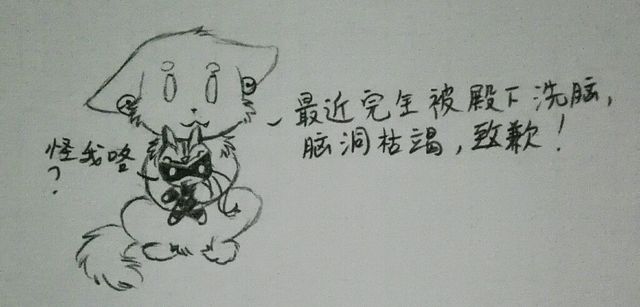 最近完全被殿下洗脑,
脑洞枯竭,致歉!
怪我咯
?